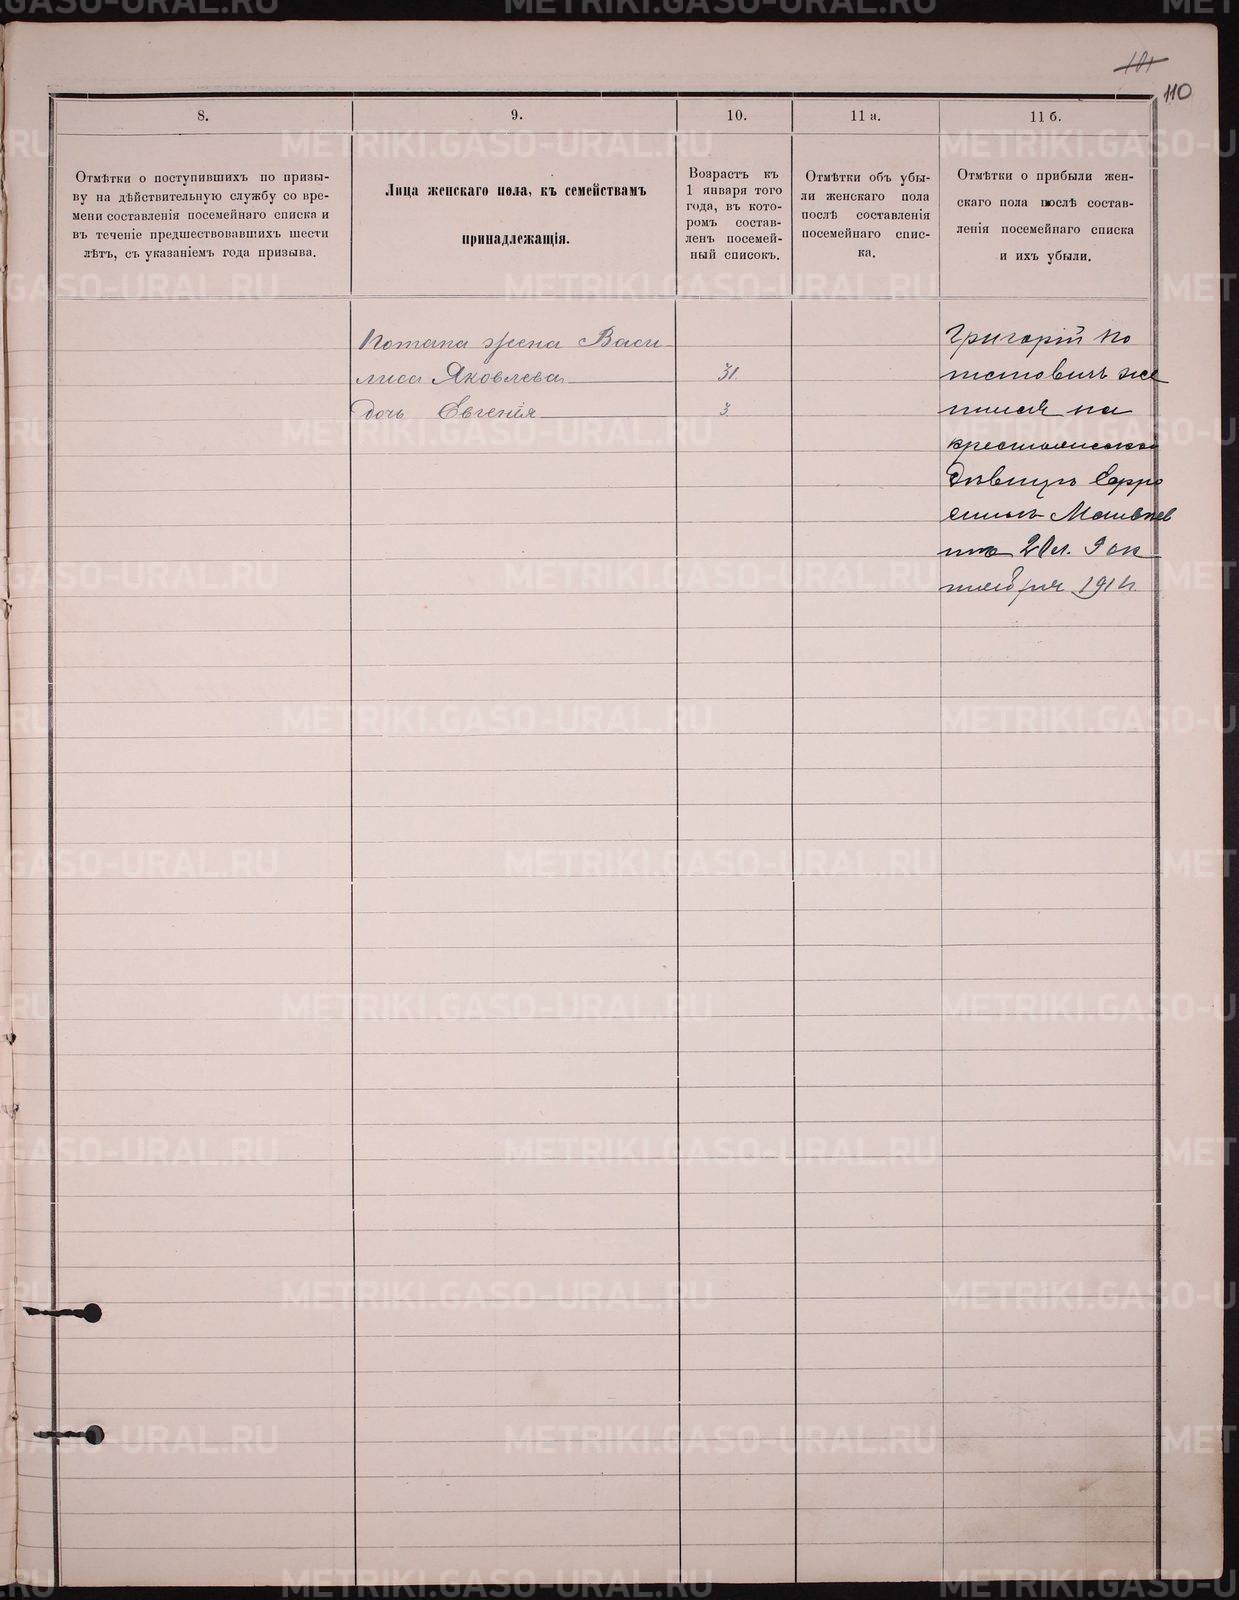 101
110
8.
9.
10.
11 а.
11 б.
Отмѣтки о поступившихъ по призы-
ву на дѣйствительную службу со вре-
мени составленія посемейнаго списка и
въ теченіе предшествовавшихъ шести
лѣтъ, съ указаніемъ года призыва.
Лица женскаго пола, къ семействамъ
принадлежащія.
Возрастъ къ
1 января того
года, въ кото-
ромъ состав-
ленъ посемей-
ный списокъ.
Отмѣтки объ убы-
ли женскаго пола
послѣ составленія
посемейнаго спис-
ка.
Отмѣтки о прибыли жен-
скаго пола послѣ состав-
ленія посемейнаго списка
и ихъ убыли.
Потапа жена Васи
лиса Яковлева 31
дочь Евгенія 3
Григорій По
таповичъ же
нился на
крестьянской
дѣвицѣ Евфро
синіи Матвѣев
20 л. 9 ок
тября
METRIKI.GASO-URAL.RU